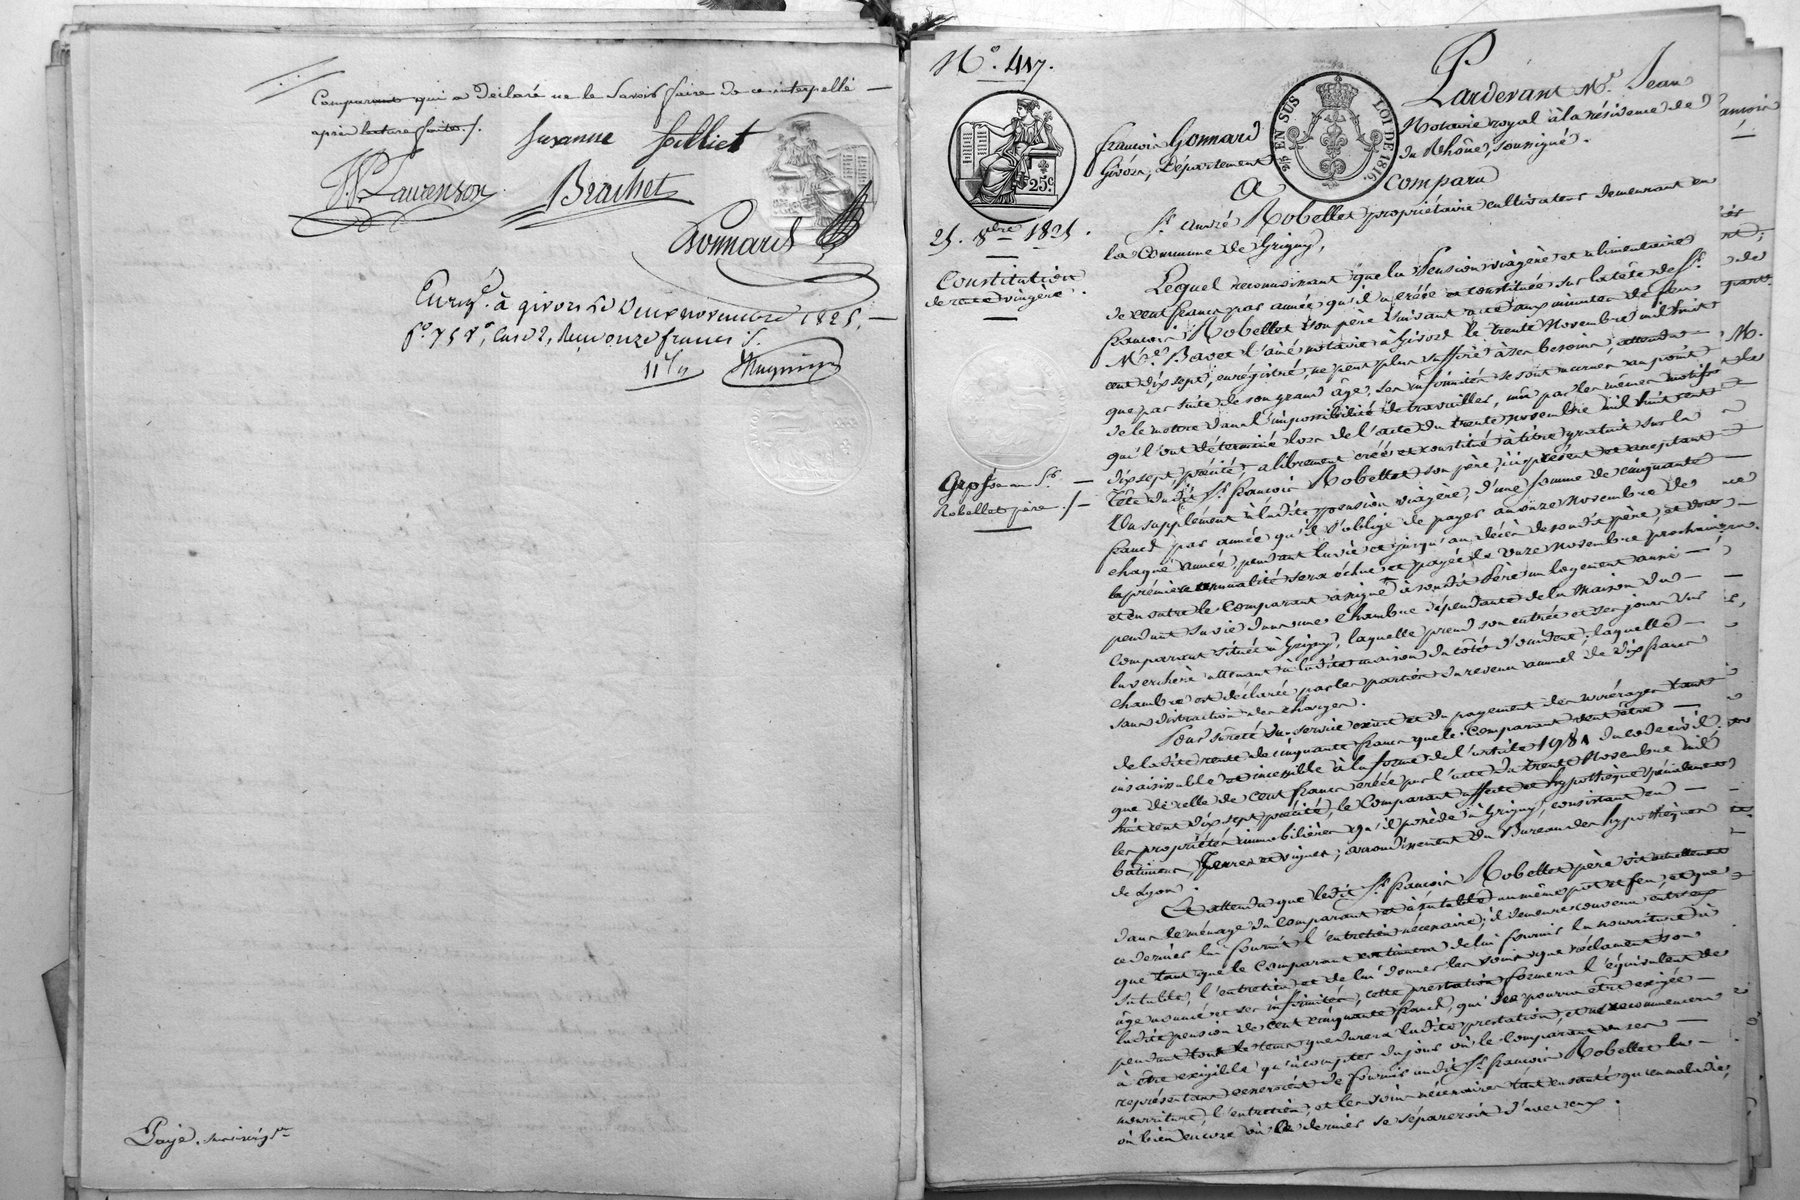 Comparant qui a déclaré ne le savoir faire de ce interpellé —
après lecture faite ./.
Suzanne Jolliet
Brachet
Gonnard
Enreg.t à givors le deux novembre 1825, —
f.o 75 v.o, Case 2, Reçu onze francs
Payé.
N.o 417.
25 c
25 EN SUS
LOI DE 1816.
Pardevant M.e Jean
françois Gonnard Notaire royal à la résidence de
Givors, Département du Rhône, soussigné.
A Comparu
S.r André Robellet propriétaire cultivateur demeurant en
la Commune de Grigny,
25. 8bre 1825.
Constitution
de rente viagère.
Lequel reconnaissant que la Pension viagère et alimentaire
de cent francs par année qu'il a créée et constituée sur la tête de S.r
françois Robellet son père suivant acte aux minutes de feu
M.e Bavet l'ainé notaire à Givors le trente Novembre mil huit
cent dix sept, enregistré, ne peut plus suffire à ses besoins, attendu
que par suite de son grand âge, ses infirmités se sont accrues au point
de le mettre dans l'impossibilité de travailler, mu par les mêmes motifs
qu'l'ont déterminé lors de l'acte du trente novembre mil huit cent
dix sept, précité, a librement créé et constitué à titre gratuit sur la
Grosse au S.r
Robellet père ./.
tête dudit S.r françois Robellet son père, ici présent et acceptant
Un supplément à ladite pension viagère, d'une somme de cinquante
francs par année qu'il s'oblige de payer au onze Novembre de
chaque année, pendant la vie et jusqu'au décès de sondit père, et dont
la première annualité sera échue et payée le onze Novembre prochain
et en outre le Comparant assigne à sondit Père un logement aussi
pendant sa vie dans une chambre dépendante de la Maison du
Comparant située à Grigny, laquelle prend son entrée et ses jours sur
la verchere attenant à ladite maison du côté d'occident, laquelle
chambre est déclarée par les parties du revenu annuel de dix francs
sans distraction des charges.
Pour sureté du service exact et du payement des arrérages tant
de ladite rente de cinquante francs que le Comparant veut être
insaisissable et incessible à la forme de l'article 1981 du code civil
que de celle de cent francs créée par l'acte du trente Novembre mil
huit cent dix sept précité, le Comparant affecte et hypothèque spécialement
les propriétés immobilières qu'il possède à Grigny, consistant en
batimens, Terres et vignes; arrondissement du Bureau des hypothèques
de Lyon.
Et attendu que ledit S.r françois Robellet père vit actuellement
dans le ménage du Comparant et à sa table, au même pot et feu, et que
ce dernier lui fournit l'entretien nécessaire; il demeure convenu entr'eux
que tant que le Comparant continuera de lui fournir la nourriture à
sa table, l'entretien et de lui donner les soins que réclament son
âge avancé et ses infirmités, cette prestation formera l'équivalent de
ladite pension de cent cinquante francs, qui ne pourra être exigée
pendant tout le tems que durera ladite prestation et ne recommencera
à être exigible qu'à compter du jour où le Comparant ou ses
représentans cesseroient de fournir audit S.r françois Robellet la
nourriture, l'entretien, et les soins nécessaires tant en santé qu'en maladie,
où bien encore où ce dernier se sépareroit d'avec eux.